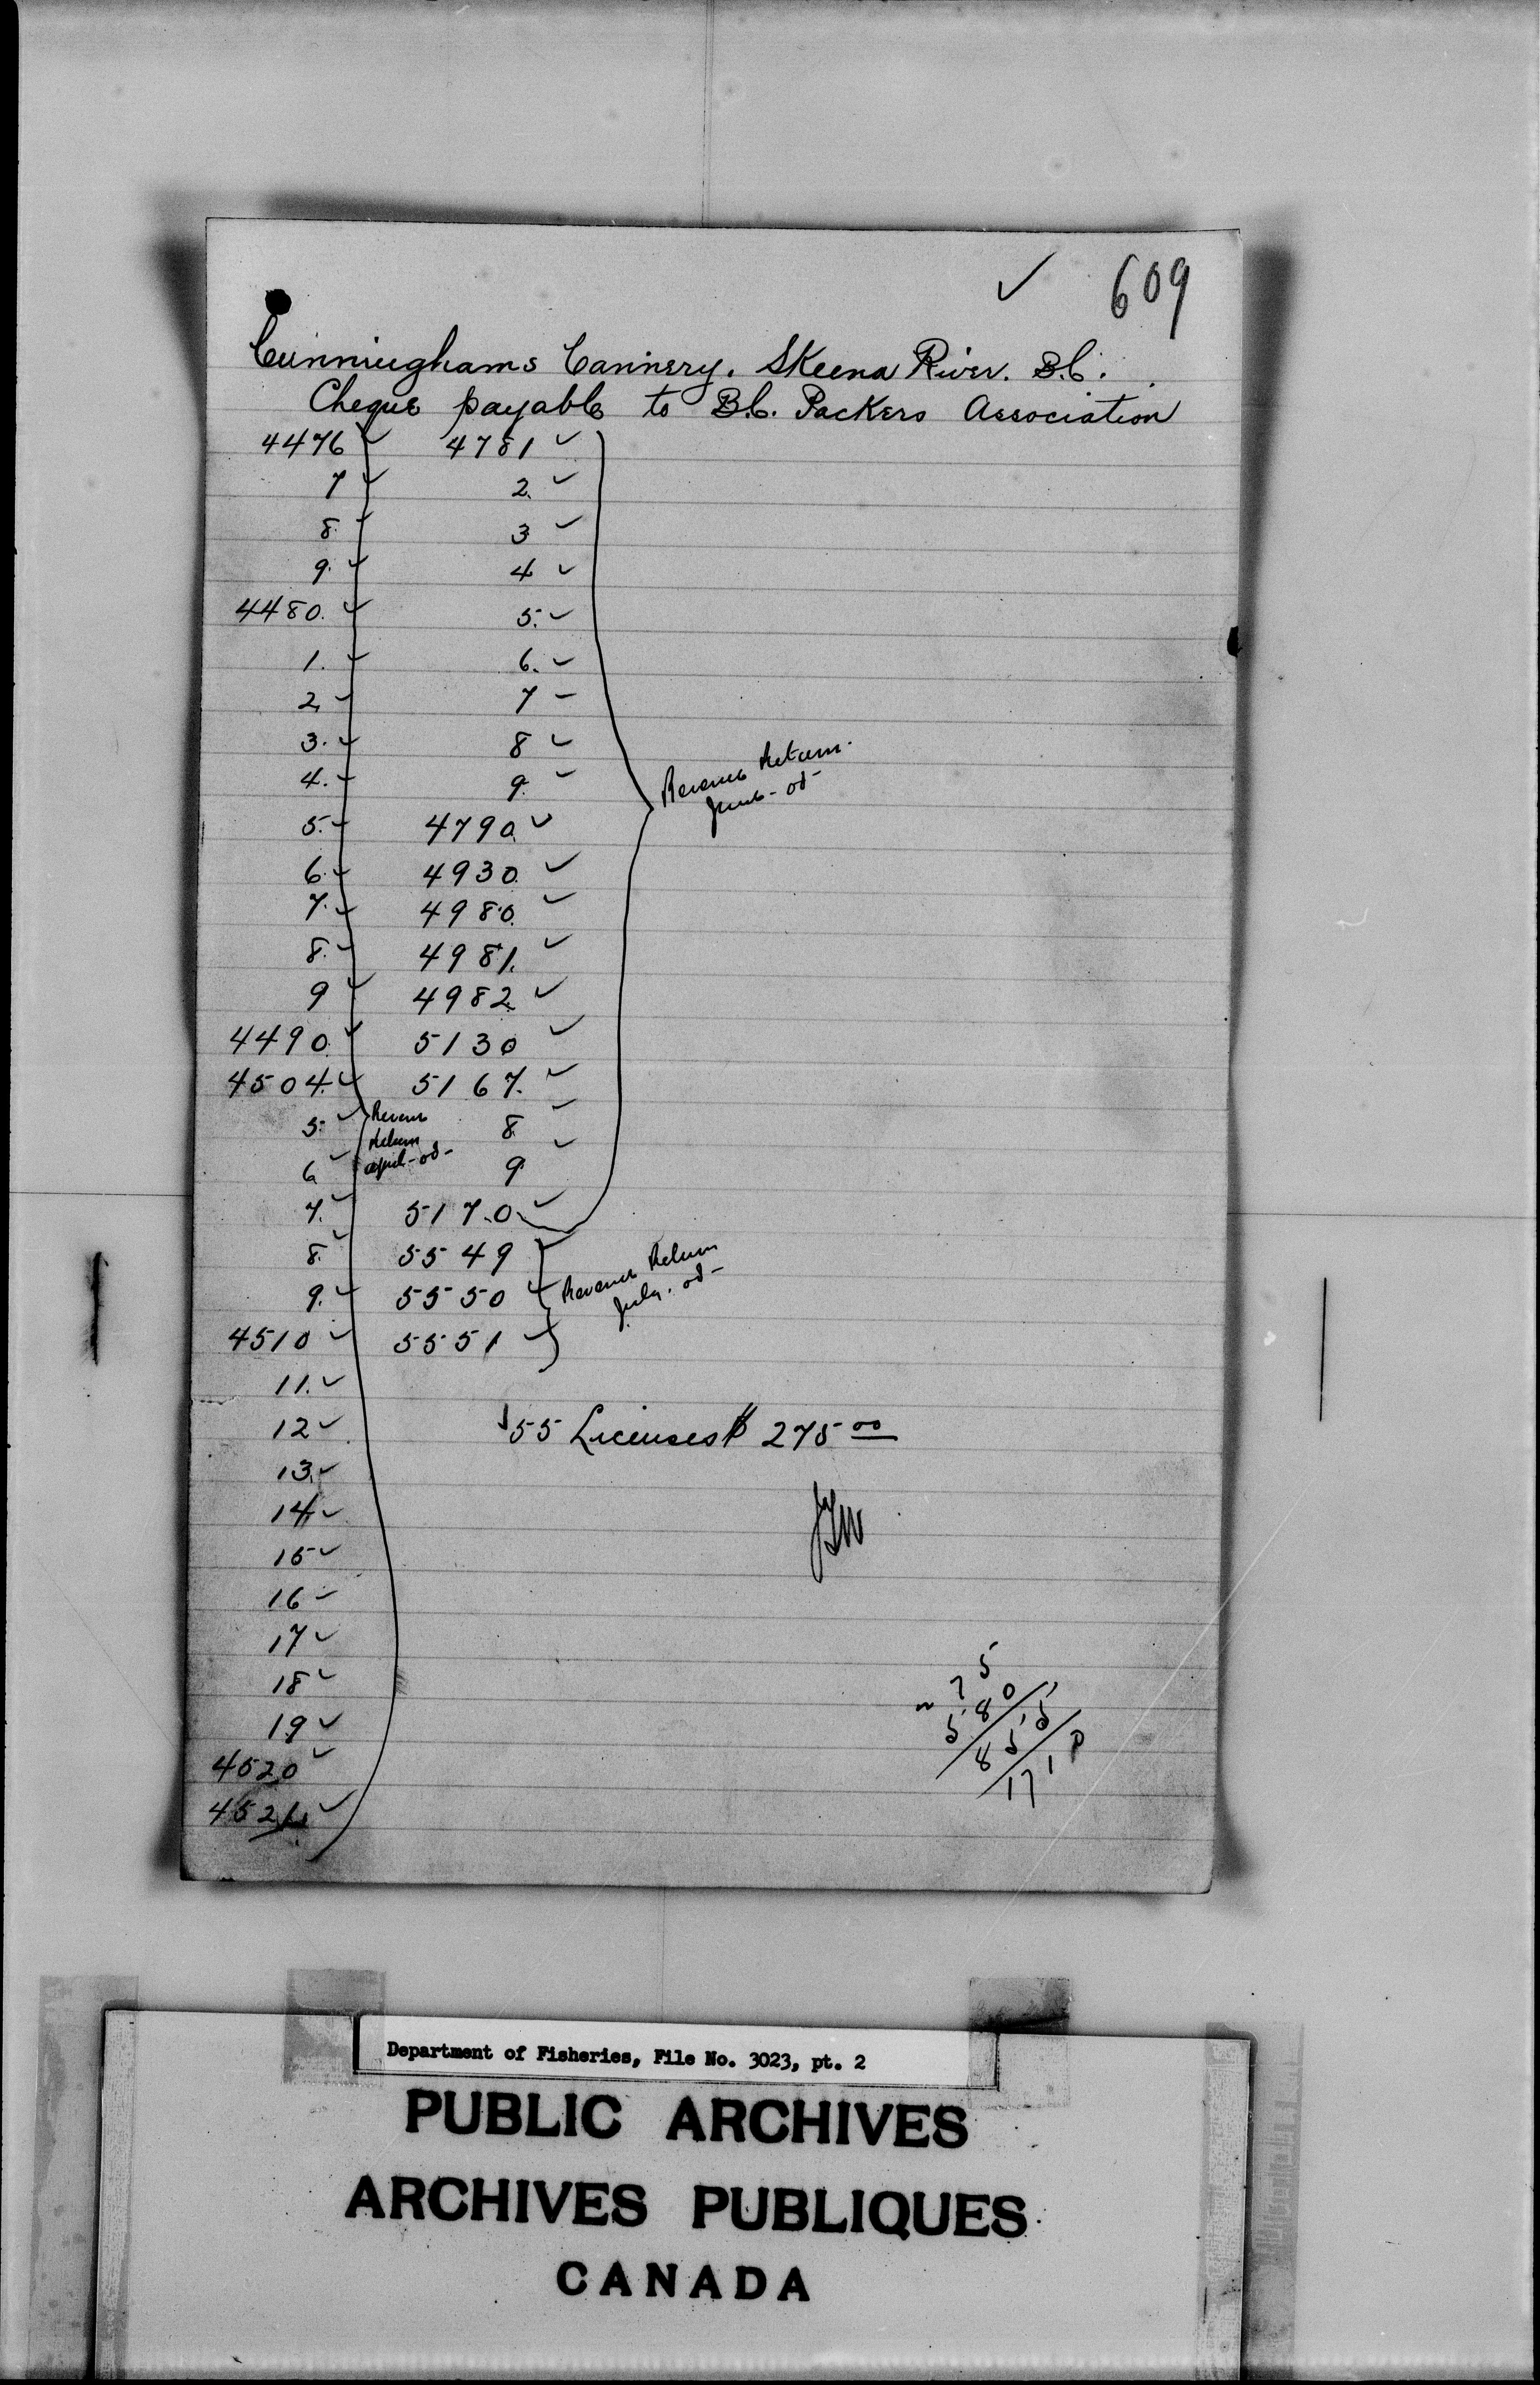 ✓ 609
Cunninghams Cannery. Skeena River. B.C.
Cheque payable to B.C. Packers Association
4476 ✓ 4781 ✓
7 ✓ 2. ✓
8. ✓ 3 ✓
9. ✓ 4 ✓
4480. ✓ 5. ✓
1. ✓ 6. ✓
2. ✓ 7 –
3. ✓ 8 ✓
4. ✓ 9. ✓
Revenue Return.
June - 05 -
5. ✓ 4790. ✓
6. ✓ 4930. ✓
7. ✓ 4980. ✓
8. ✓ 4981. ✓
9 ✓ 4982. ✓
4490. ✓ 5130 ✓
4504. ✓ 5167. ✓
5. ✓ 8. ✓
6 ✓ 9. ✓
Revenue
Return
april - 05 -
7. ✓ 5170. ✓
8. ✓ 5549 ✓
9. ✓ 5550 ✓
Revenue Return
July. 05 -
4510 ✓ 5551 ✓
11. ✓
12 ✓ 55 Licenses $ 275 00
13. ✓
14 ✓
15 ✓
16 ✓
17 ✓
18 ✓
19 ✓
4520 ✓
4521. ✓
275
580
855
1710
Department of Fisheries, File No. 3023, pt. 2
PUBLIC ARCHIVES
ARCHIVES PUBLIQUES
CANADA